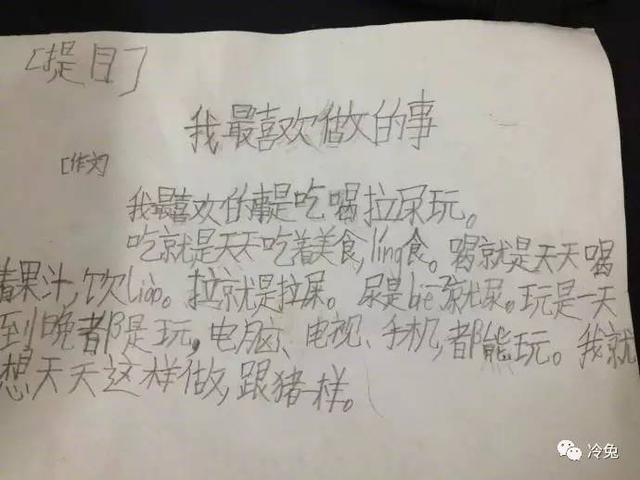 [提目]
我最喜欢做的事
[作文]
我最喜欢的事是吃喝拉尿玩。
吃就是天天吃着美食,ling食。喝就是天天喝
着果汁,饮liao。拉就是拉屎。尿是bie了就尿。玩是一天
到晚都是玩,电脑、电视、手机,都能玩。我就
想天天这样做,跟猪一样。
冷兔